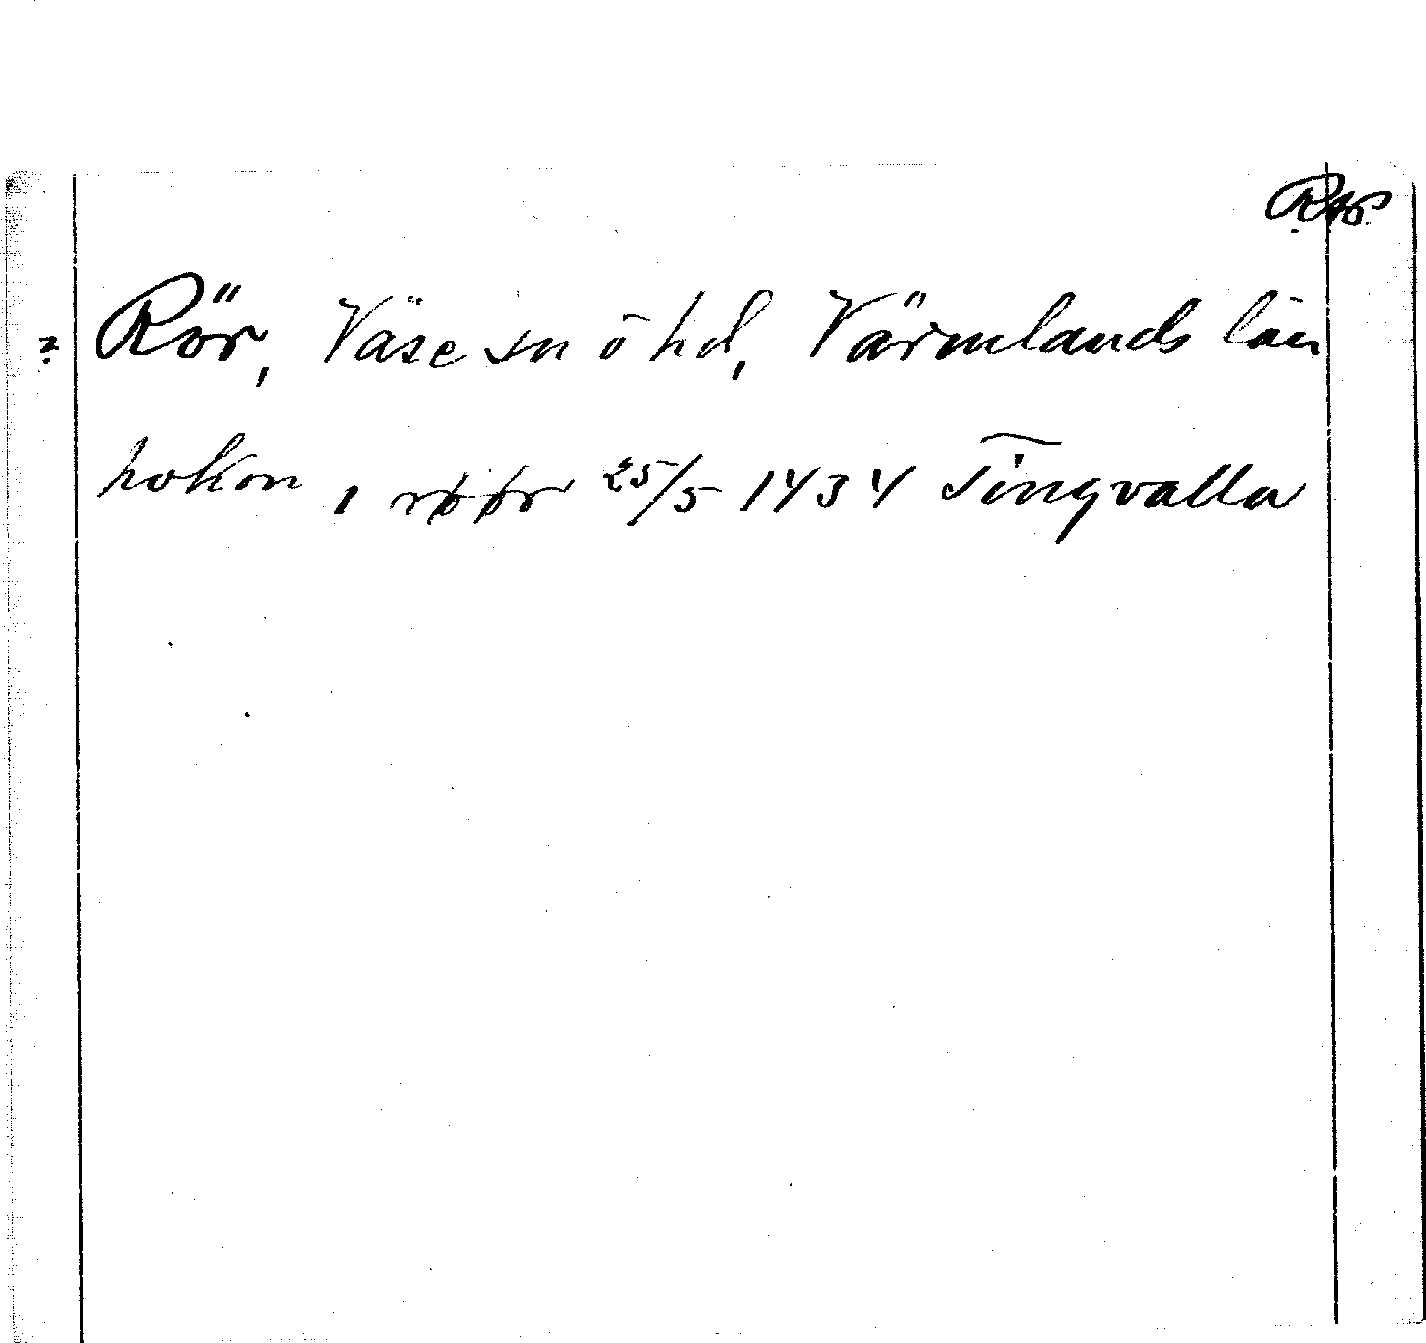 RAp.
? Rör, Väse sn o hd, Värmlands län
hokon i røør 25/5 1434 Tingvalla